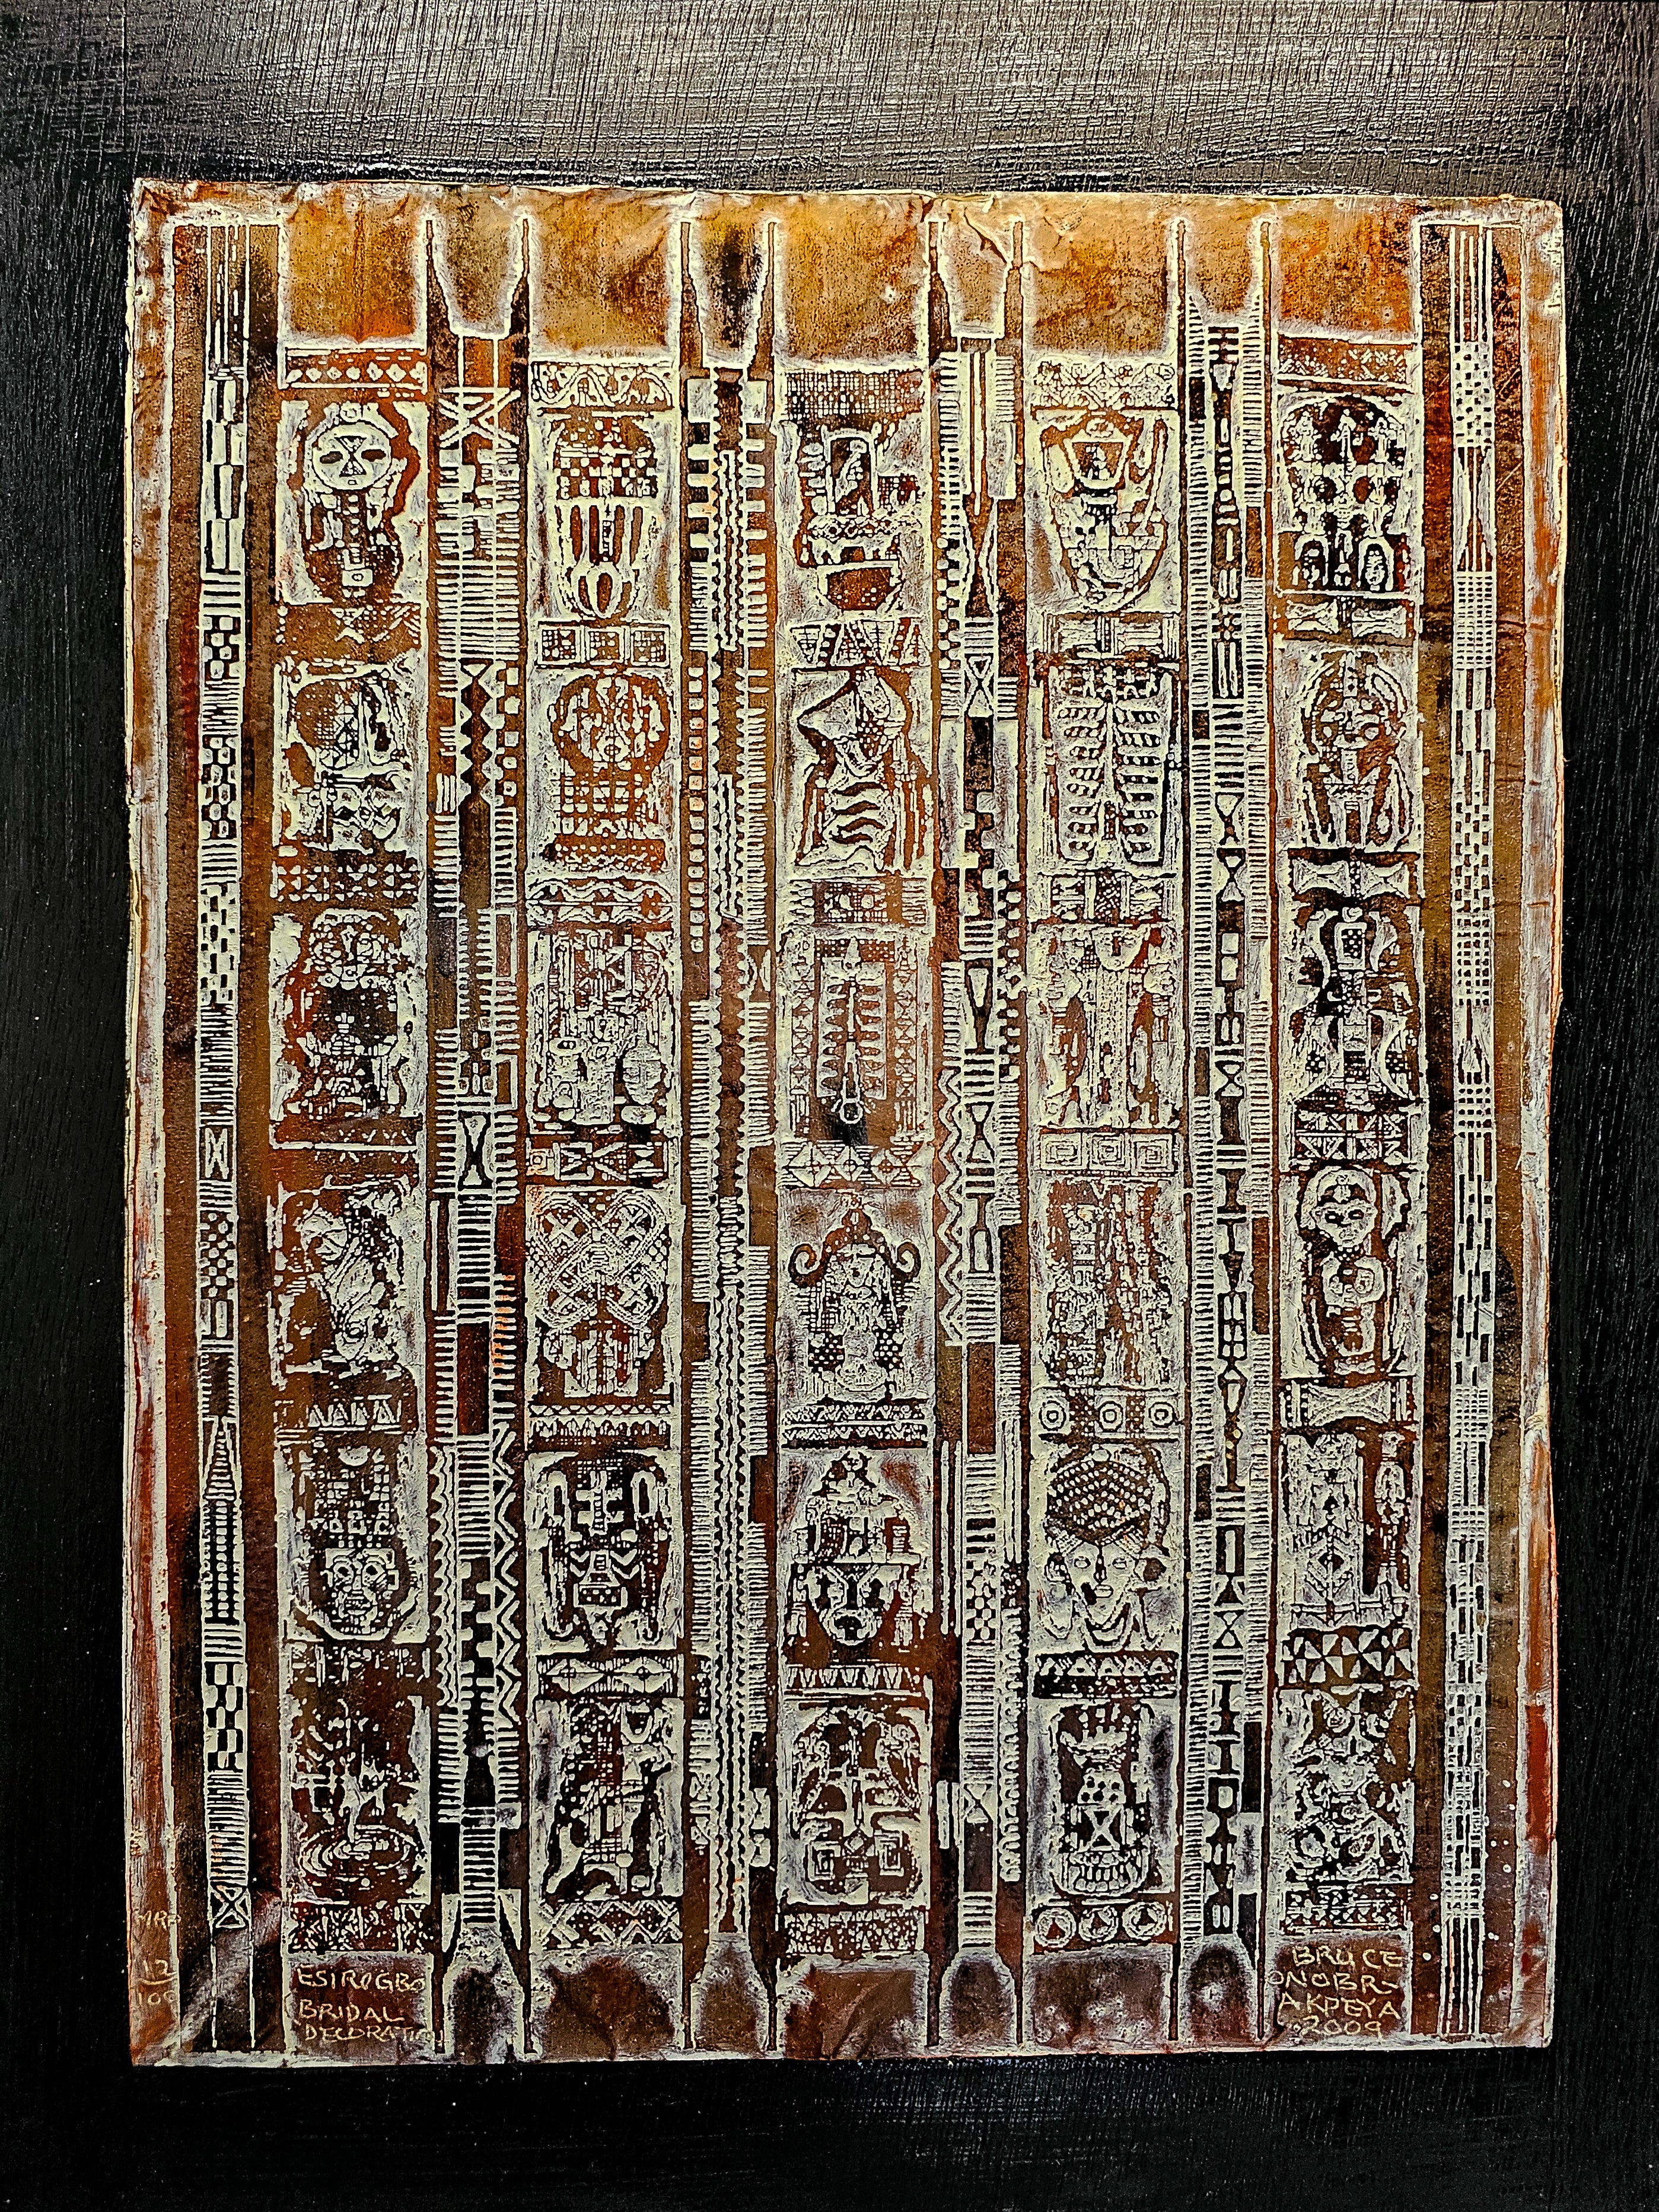 MRP
12
100
ESIROGBO
BRIDAL
DECORATION
BRUCE
ONOBR-
AKPEYA
2009